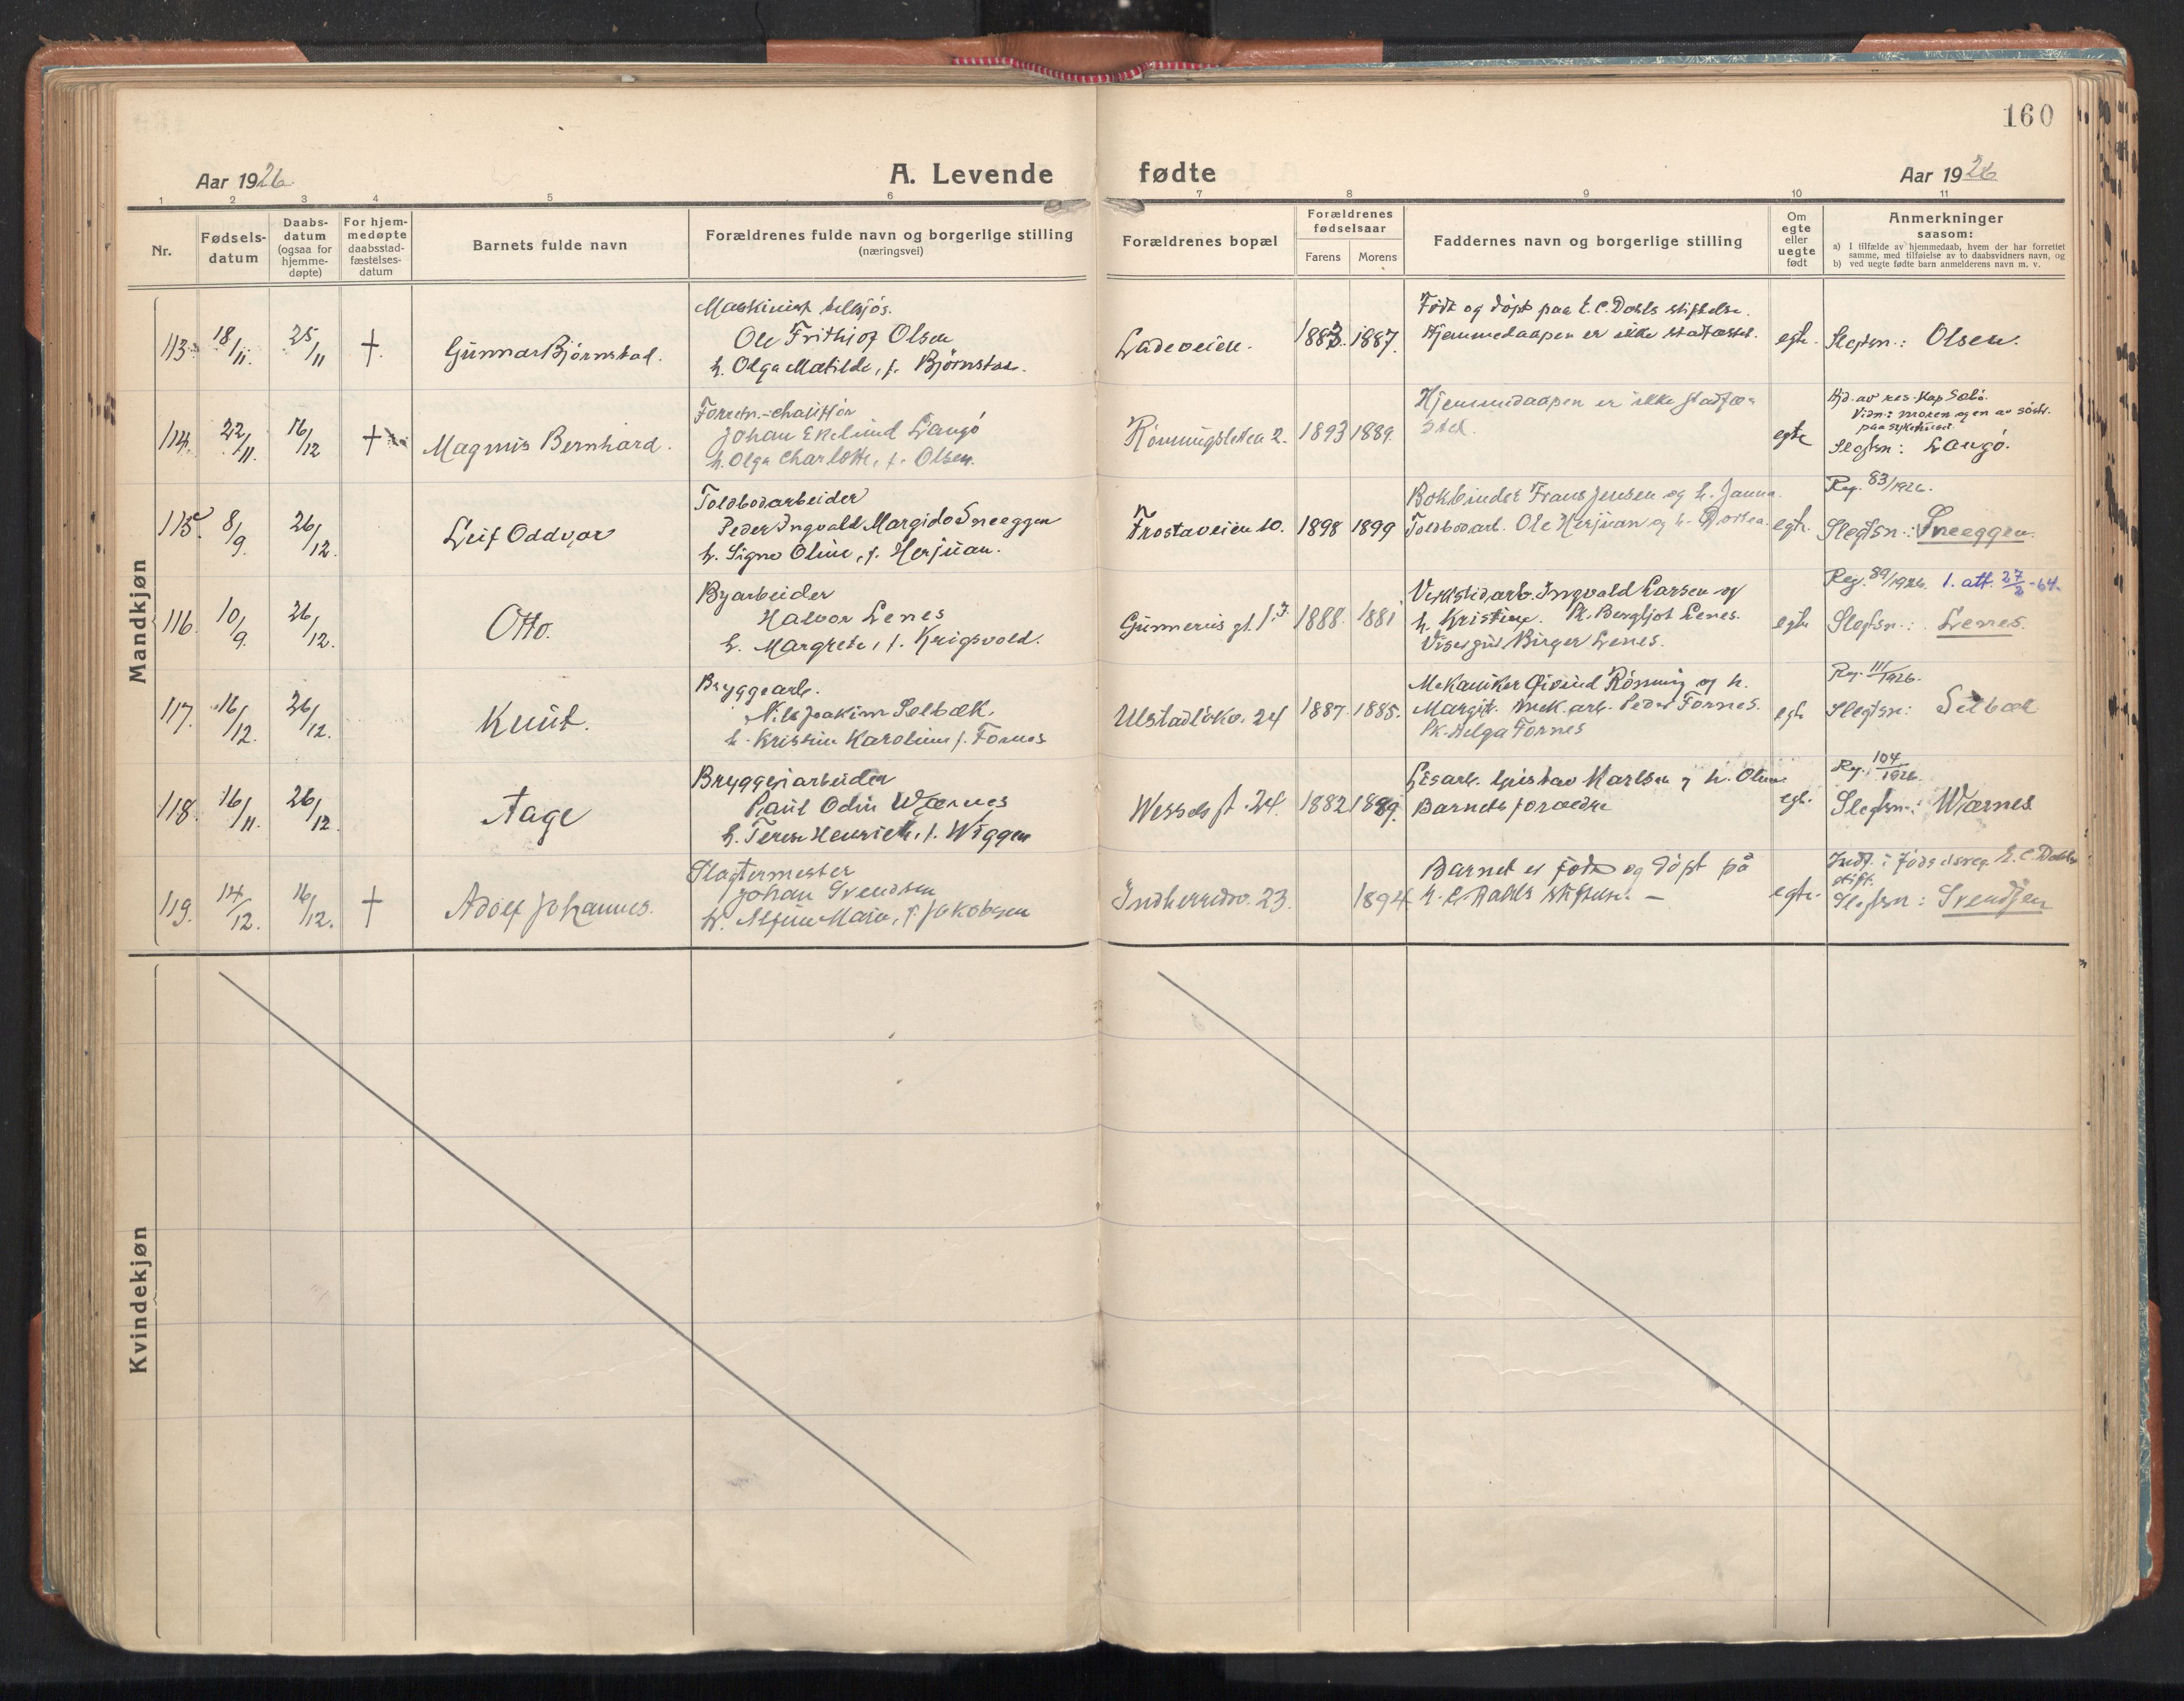 160
Aar 1926
A. Levende fødte
Aar 1926
1 2 3 4 5 6 7 8 9 10 11
Nr.
Fødsels-
datum
Daabs-
datum
(ogsaa for
hjemme-
døpte)
For hjem-
medøpte
daabsstad-
fæstelses-
datum
Barnets fulde navn
Forældrenes fulde navn og borgerlige stilling
(næringsvei)
Forældrenes bopæl
Forældrenes
fødselsaar
Farens Morens
Faddernes navn og borgerlige stilling
Om
egte
eller
uegte
født
Anmerkninger
saasom:
a) I tilfælde av hjemmedaab, hvem der har forrettet
samme, med tilføielse av to daabsvidners navn, og
b) ved uegte fødte barn anmelderens navn m. v.
Mandkjøn
113. 18/11. 25/11 † Gunnar Bjørnstad.
Maskinist
Ole Frithjof Olsen
h. Olga Matilde, f. Bjørnstad.
Ladeveien. 1883. 1887.
Født og døpt paa E. C. Dahls stiftelse.
Hjemmedaapen er ikke stadfæstet.
egte. Slegtsn.: Olsen.
114. 22/11. 16/12 † Magnus Bernhard.
Forretn.-chauffør
Johan Ekelund Langø
h. Olga Charlotte, f. Olsen.
Rønningsletta 2. 1893 1889.
Hjemmedaapen er ikke stadfæ-
stet.
egte
Hjd. av res. kap. Sæbø.
Vidn.: moren og en av søstr.
paa sykehuset.
Slegtsn: Langø.
115. 8/9. 26/12. Leif Oddvar
Toldbodarbeider
Peder Ingvald Margido Sneeggen
h. Signe Oline, f. Herjuan.
Frostaveien 10. 1898 1899
Bokbinder Frans Jensen og h. Janna.
Toldbodarb. Ole Herjuan og h. Dortea.
egte.
Reg. 83/1926.
Slegtsn.: Sneeggen.
116. 10/9. 26/12. Otto.
Byarbeider
Halvor Lenes
h. Margrete, f. Krigsvold.
Gunnerus gt. 1 1888. 1881
Verkstedarb. Ingvald Larsen og
h. Kristine. Pk. Bergljot Lenes.
Visergut Birger Lenes.
egte
Reg. 89/1926. 1. att. 27/2-64.
Slegtsn.: Lenes.
117. 16/12. 26/12. Knut.
Bryggearb.
Nils Joakim Selbæk,
h. Kristine Karoline f. Fornes
Ulstadløkv. 24 1887. 1885.
Mekaniker Øivind Rønning og h.
Margit. Mek. arb. Peder Fornes.
Pk. Helga Fornes
egte
Reg. 111/1926.
Slegtsn: Selbæk
118. 16/11. 26/12. Aage
Bryggeriarbeider
Paul Odin Wærnes
h. Terese Henriette, f. Wiggen
Wessels gt. 24. 1882 1889.
Løsarb. Gustav Karlsen og h. Oline
Barnets forældre
egte.
Reg. 104/1926.
Slegtsn.: Wærnes
119. 14/12. 16/12. † Adolf Johannes.
Slagtermester
Johan Svendsen
h. Marie, f. Jakobsen
Indherredsv. 23. 1894.
Barnet er født og døpt på
E. C. Dahls stiftelse. —
egte.
Indf. i fødselsreg. E. C. Dahls
stift.
Slegtsn: Svendsen
Kvindekjøn